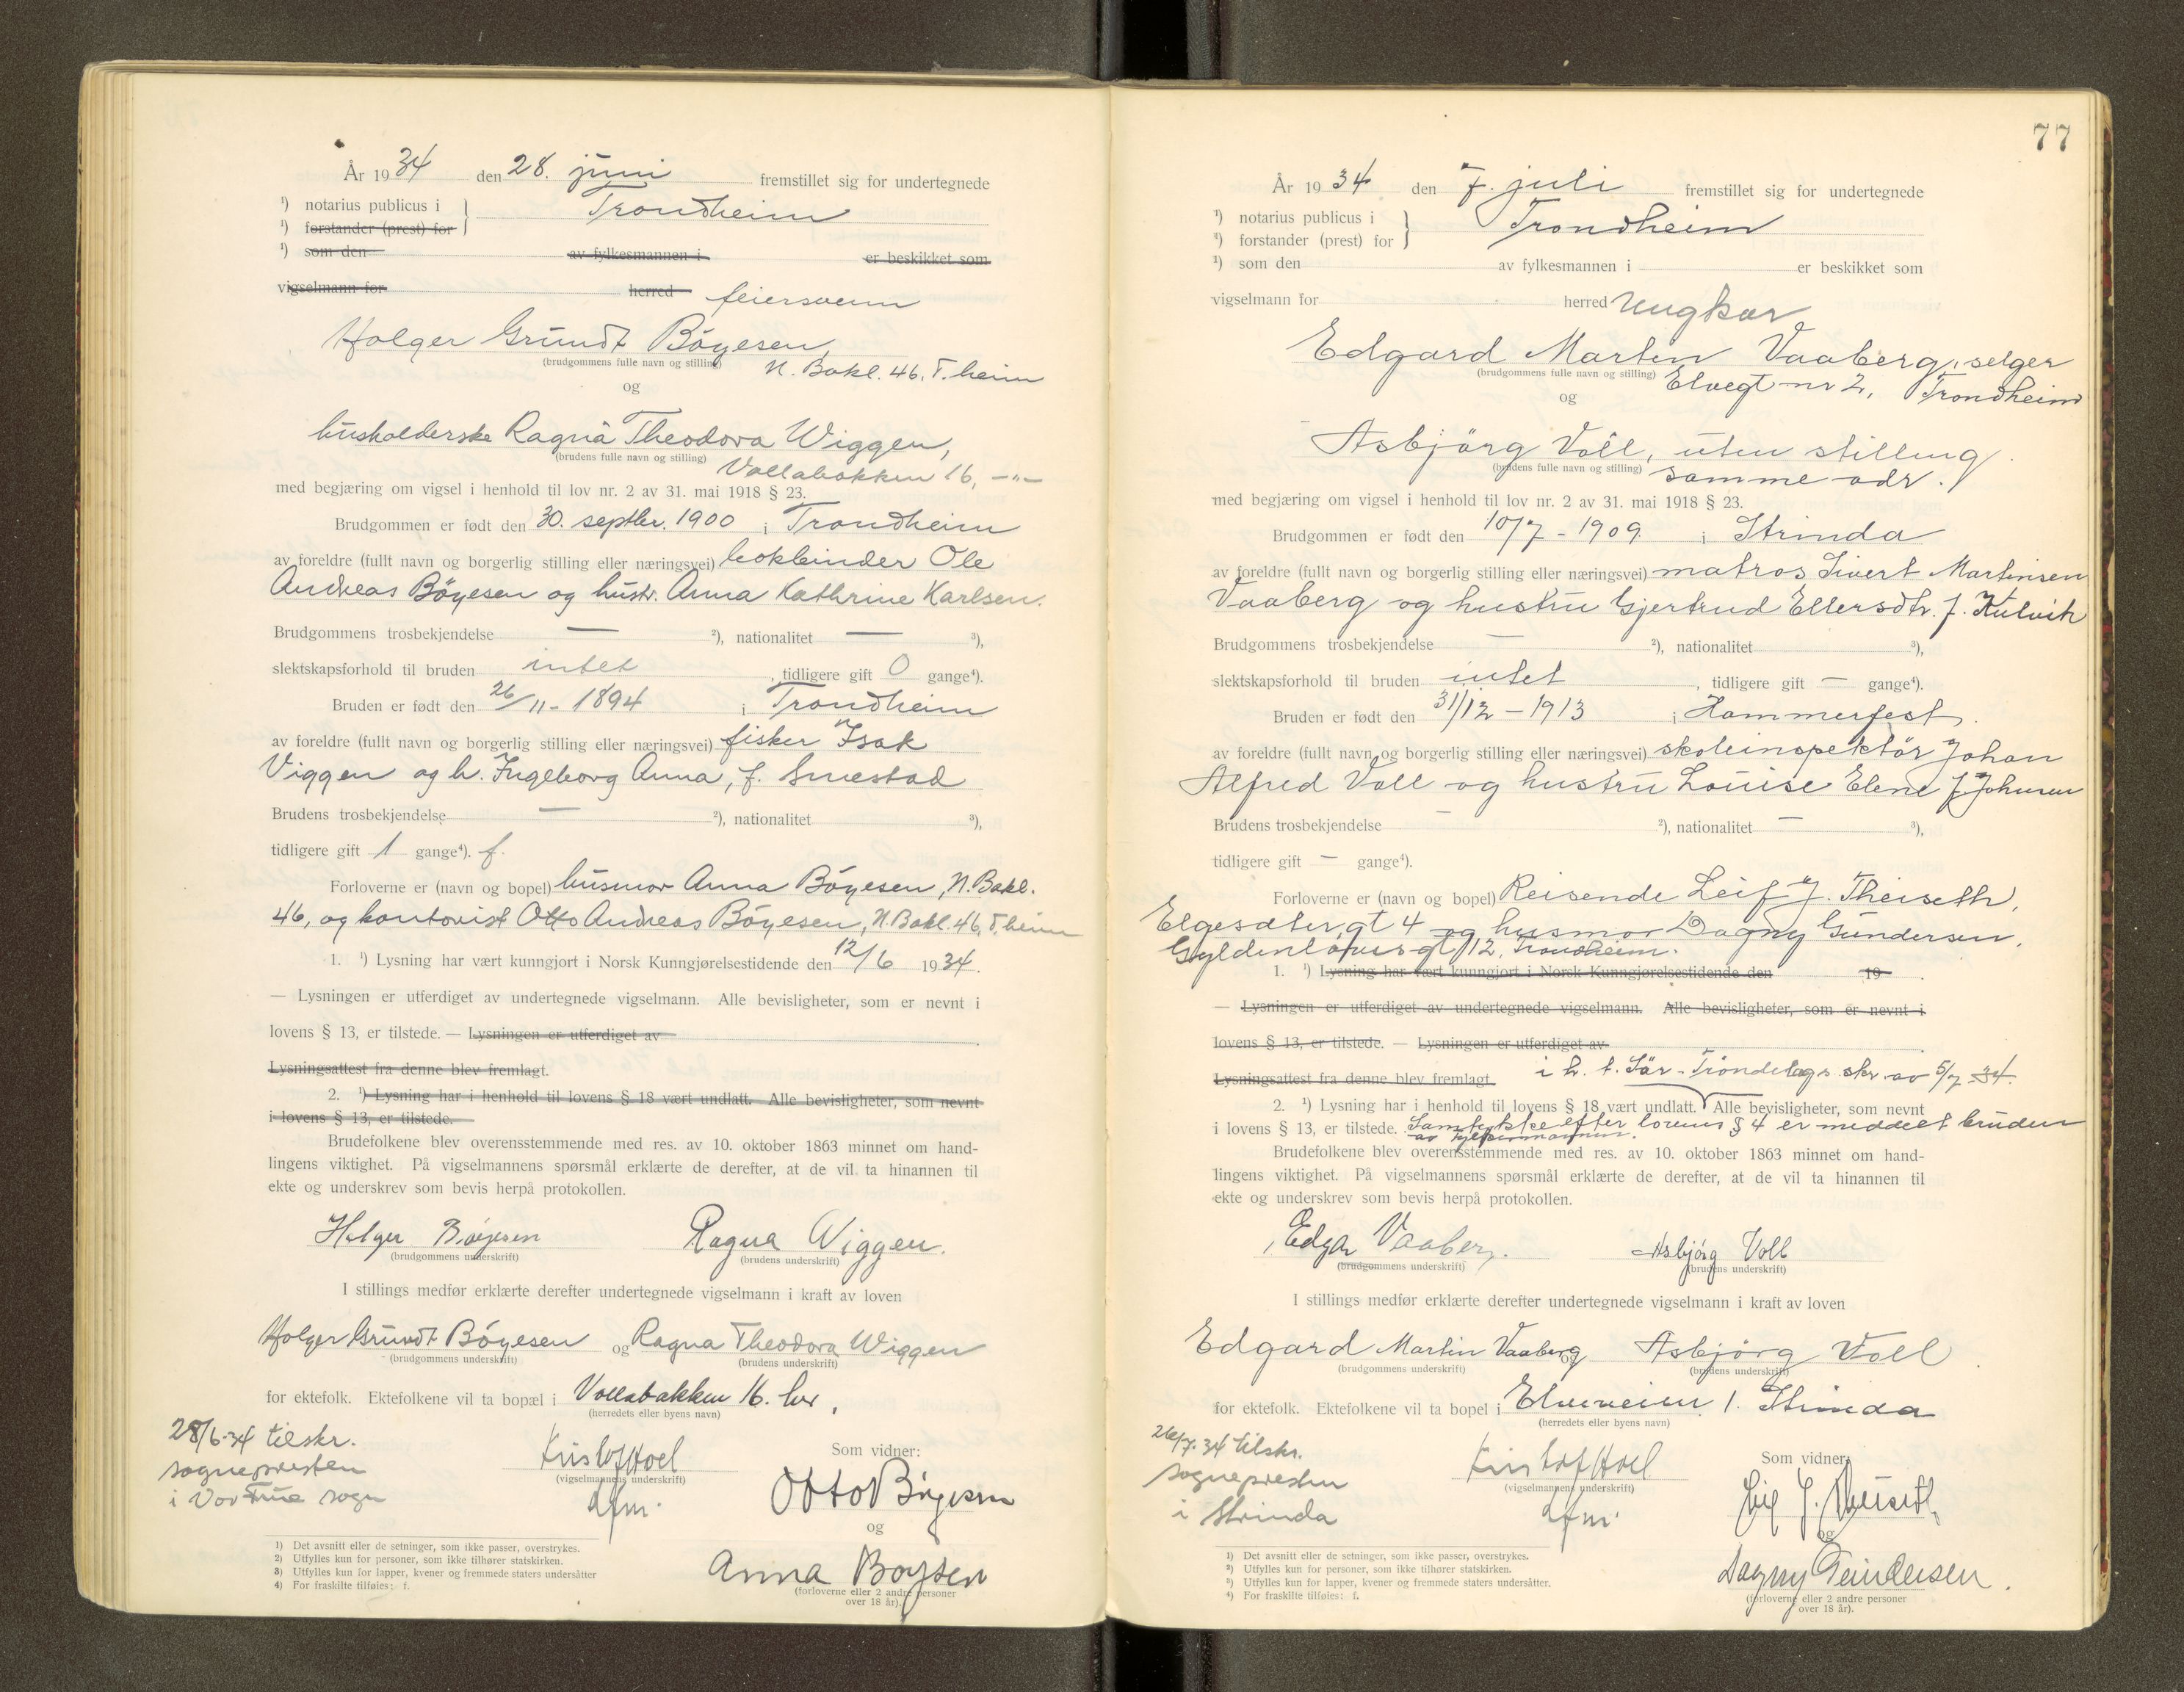 År 1934 den 28. juni fremstillet sig for undertegnede
¹) notarius publicus i
¹) forstander (prest) for
Trondheim
¹) som den av fylkesmannen i er beskikket som
vigselmann for herred feiersvenn
Holger Grundt Böyesen,
(brudgommens fulle navn og stilling) N. Bakl. 46, T.heim
og
husholderske Ragna Theodora Wiggen,
(brudens fulle navn og stilling) Vollabakken 16, —"—
med begjæring om vigsel i henhold til lov nr. 2 av 31. mai 1918 § 23.
Brudgommen er født den 30. septbr. 1900 i Trondheim
av foreldre (fullt navn og borgerlig stilling eller næringsvei) bokbinder Ole
Andreas Böyesen og hustr. Anna Kathrine Karlsen.
Brudgommens trosbekjendelse — ²), nationalitet — ³),
slektskapsforhold til bruden intet , tidligere gift 0 gange⁴).
Bruden er født den 26/11 - 1894 i Trondheim
av foreldre (fullt navn og borgerlig stilling eller næringsvei) fisker Isak
Viggen og h. Ingeborg Anna, f. Smestad
Brudens trosbekjendelse — ²), nationalitet ³),
tidligere gift 1 gange⁴). f.
Forloverne er (navn og bopel) husmor Anna Böyesen, N. Bakl.
46, og kontorist Otto Andreas Böyesen, N. Bakl. 46, T.heim
1. ¹) Lysning har vært kunngjort i Norsk Kunngjørelsestidende den 12/6 1934.
— Lysningen er utferdiget av undertegnede vigselmann. Alle bevisligheter, som er nevnt i
lovens § 13, er tilstede. — Lysningen er utferdiget av
Lysningsattest fra denne blev fremlagt.
2. ¹) Lysning har i henhold til lovens § 18 vært undlatt. Alle bevisligheter, som nevnt
i lovens § 13, er tilstede.
Brudefolkene blev overensstemmende med res. av 10. oktober 1863 minnet om hand-
lingens viktighet. På vigselmannens spørsmål erklærte de derefter, at de vil ta hinannen til
ekte og underskrev som bevis herpå protokollen.
Holger Böyesen Ragna Wiggen.
(brudgommens underskrift) (brudens underskrift)
I stillings medfør erklærte derefter undertegnede vigselmann i kraft av loven
Holger Grundt Böyesen og Ragna Theodora Wiggen
(brudgommens underskrift) (brudens underskrift)
for ektefolk. Ektefolkene vil ta bopæl i Vollabakken 16. her.
(herredets eller byens navn)
28/6-34 tilskr.
sognepresten
i Vor Frue sogn
Kristof Hoel
(vigselmannens underskrift)
dfm.
Som vidner:
Otto Böyesen
og
Anna Boysen
(forloverne eller 2 andre personer
over 18 år).
1) Det avsnitt eller de setninger, som ikke passer, overstrykes.
2) Utfylles kun for personer, som ikke tilhører statskirken.
3) Utfylles kun for lapper, kvener og fremmede staters undersåtter
4) For fraskilte tilføies: f.
77
År 1934 den 7. juli fremstillet sig for undertegnede
¹) notarius publicus i
¹) forstander (prest) for
Trondheim
¹) som den av fylkesmannen i er beskikket som
vigselmann for herred Ungkar
Edgard Martin Vaaberg, selger
(brudgommens fulle navn og stilling) Elvegt nr 2, Trondheim
og
Asbjörg Voll, uten stilling
(brudens fulle navn og stilling) samme adr.
med begjæring om vigsel i henhold til lov nr. 2 av 31. mai 1918 § 23.
Brudgommen er født den 10/7 - 1909 i Strinda
av foreldre (fullt navn og borgerlig stilling eller næringsvei) matros Sivert Martinsen
Vaaberg og hustru Gjertrud Ellersdtr. f. Kulvik
Brudgommens trosbekjendelse — ²), nationalitet ³),
slektskapsforhold til bruden intet , tidligere gift — gange⁴).
Bruden er født den 31/12 - 1913 i Hammerfest.
av foreldre (fullt navn og borgerlig stilling eller næringsvei) skoleinspektör Johan
Alfred Voll og hustru Louise Elene f. Johnsen
Brudens trosbekjendelse — ²), nationalitet — ³),
tidligere gift — gange⁴).
Forloverne er (navn og bopel) Reisende Leif J. Theiseth,
Elgesætergt 4 og husmor Dagny Gundersen,
Gyldenløvesgt 12, Trondheim.
1. ¹) Lysning har vært kunngjort i Norsk Kunngjørelsestidende den 19
— Lysningen er utferdiget av undertegnede vigselmann. Alle bevisligheter, som er nevnt i
lovens § 13, er tilstede. — Lysningen er utferdiget av
Lysningsattest fra denne blev fremlagt. i h. t. Sör-Tröndelags skr. av 5/7 34.
2. ¹) Lysning har i henhold til lovens § 18 vært undlatt. Alle bevisligheter, som nevnt
i lovens § 13, er tilstede. Samtykke efter lovens § 4 er meddelt bruden
av fylkesmannen.
Brudefolkene blev overensstemmende med res. av 10. oktober 1863 minnet om hand-
lingens viktighet. På vigselmannens spørsmål erklærte de derefter, at de vil ta hinannen til
ekte og underskrev som bevis herpå protokollen.
Edgar Vaaberg. Asbjörg Voll
(brudgommens underskrift) (brudens underskrift)
I stillings medfør erklærte derefter undertegnede vigselmann i kraft av loven
Edgard Martin Vaaberg og Asbjörg Voll
(brudgommens underskrift) (brudens underskrift)
for ektefolk. Ektefolkene vil ta bopel i Elveveien 1. Strinda
(herredets eller byens navn)
26/7-34 tilskr.
sognepresten
i Strinda
Kristof Hoel
(vigselmannens underskrift)
dfm.
Som vidner:
Leif J. Theiseth
og
Dagny Gundersen.
(forloverne eller 2 andre personer
over 18 år).
¹) Det avsnitt eller de setninger, som ikke passer, overstrykes.
²) Utfylles kun for personer, som ikke tilhører statskirken.
³) Utfylles kun for lapper, kvener og fremmede staters undersåtter.
⁴) For fraskilte tilføies: f.